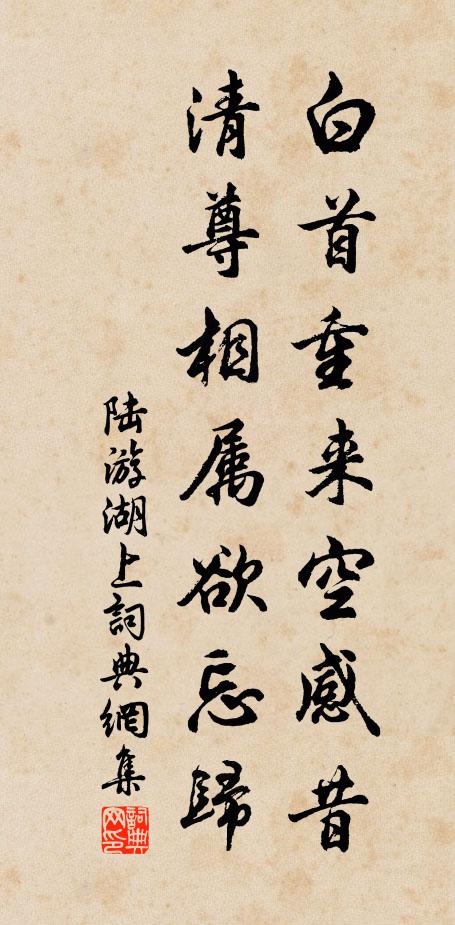 白首重来空感昔
清尊相属欲忘歸
陆游湖上詞典網集
詞典网印